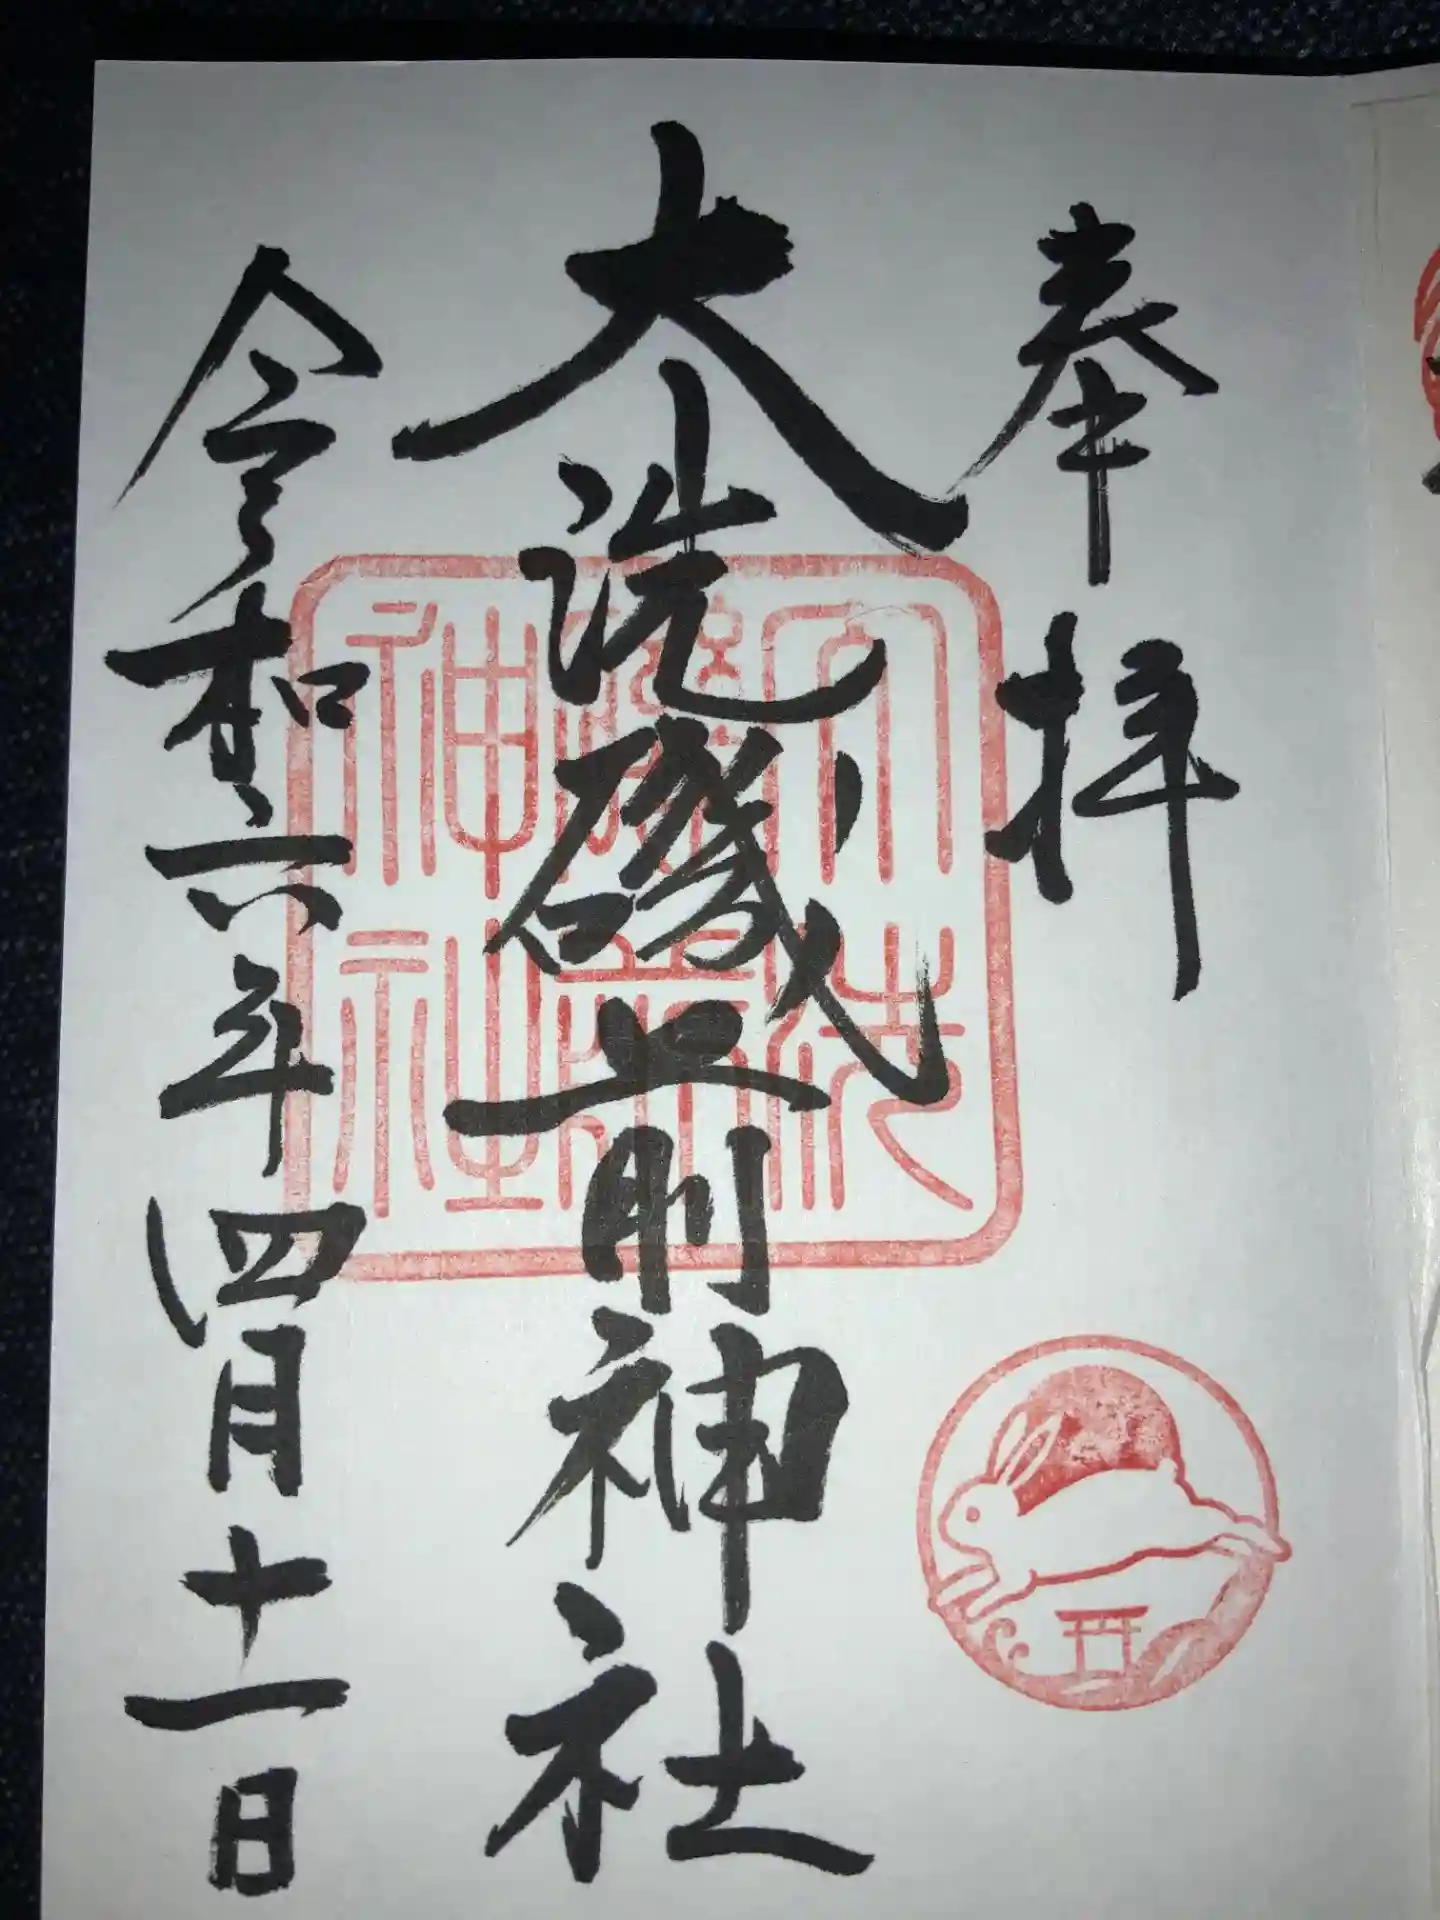 奉拝
大洗磯前神社
令和六年四月十一日
大洗磯前神社